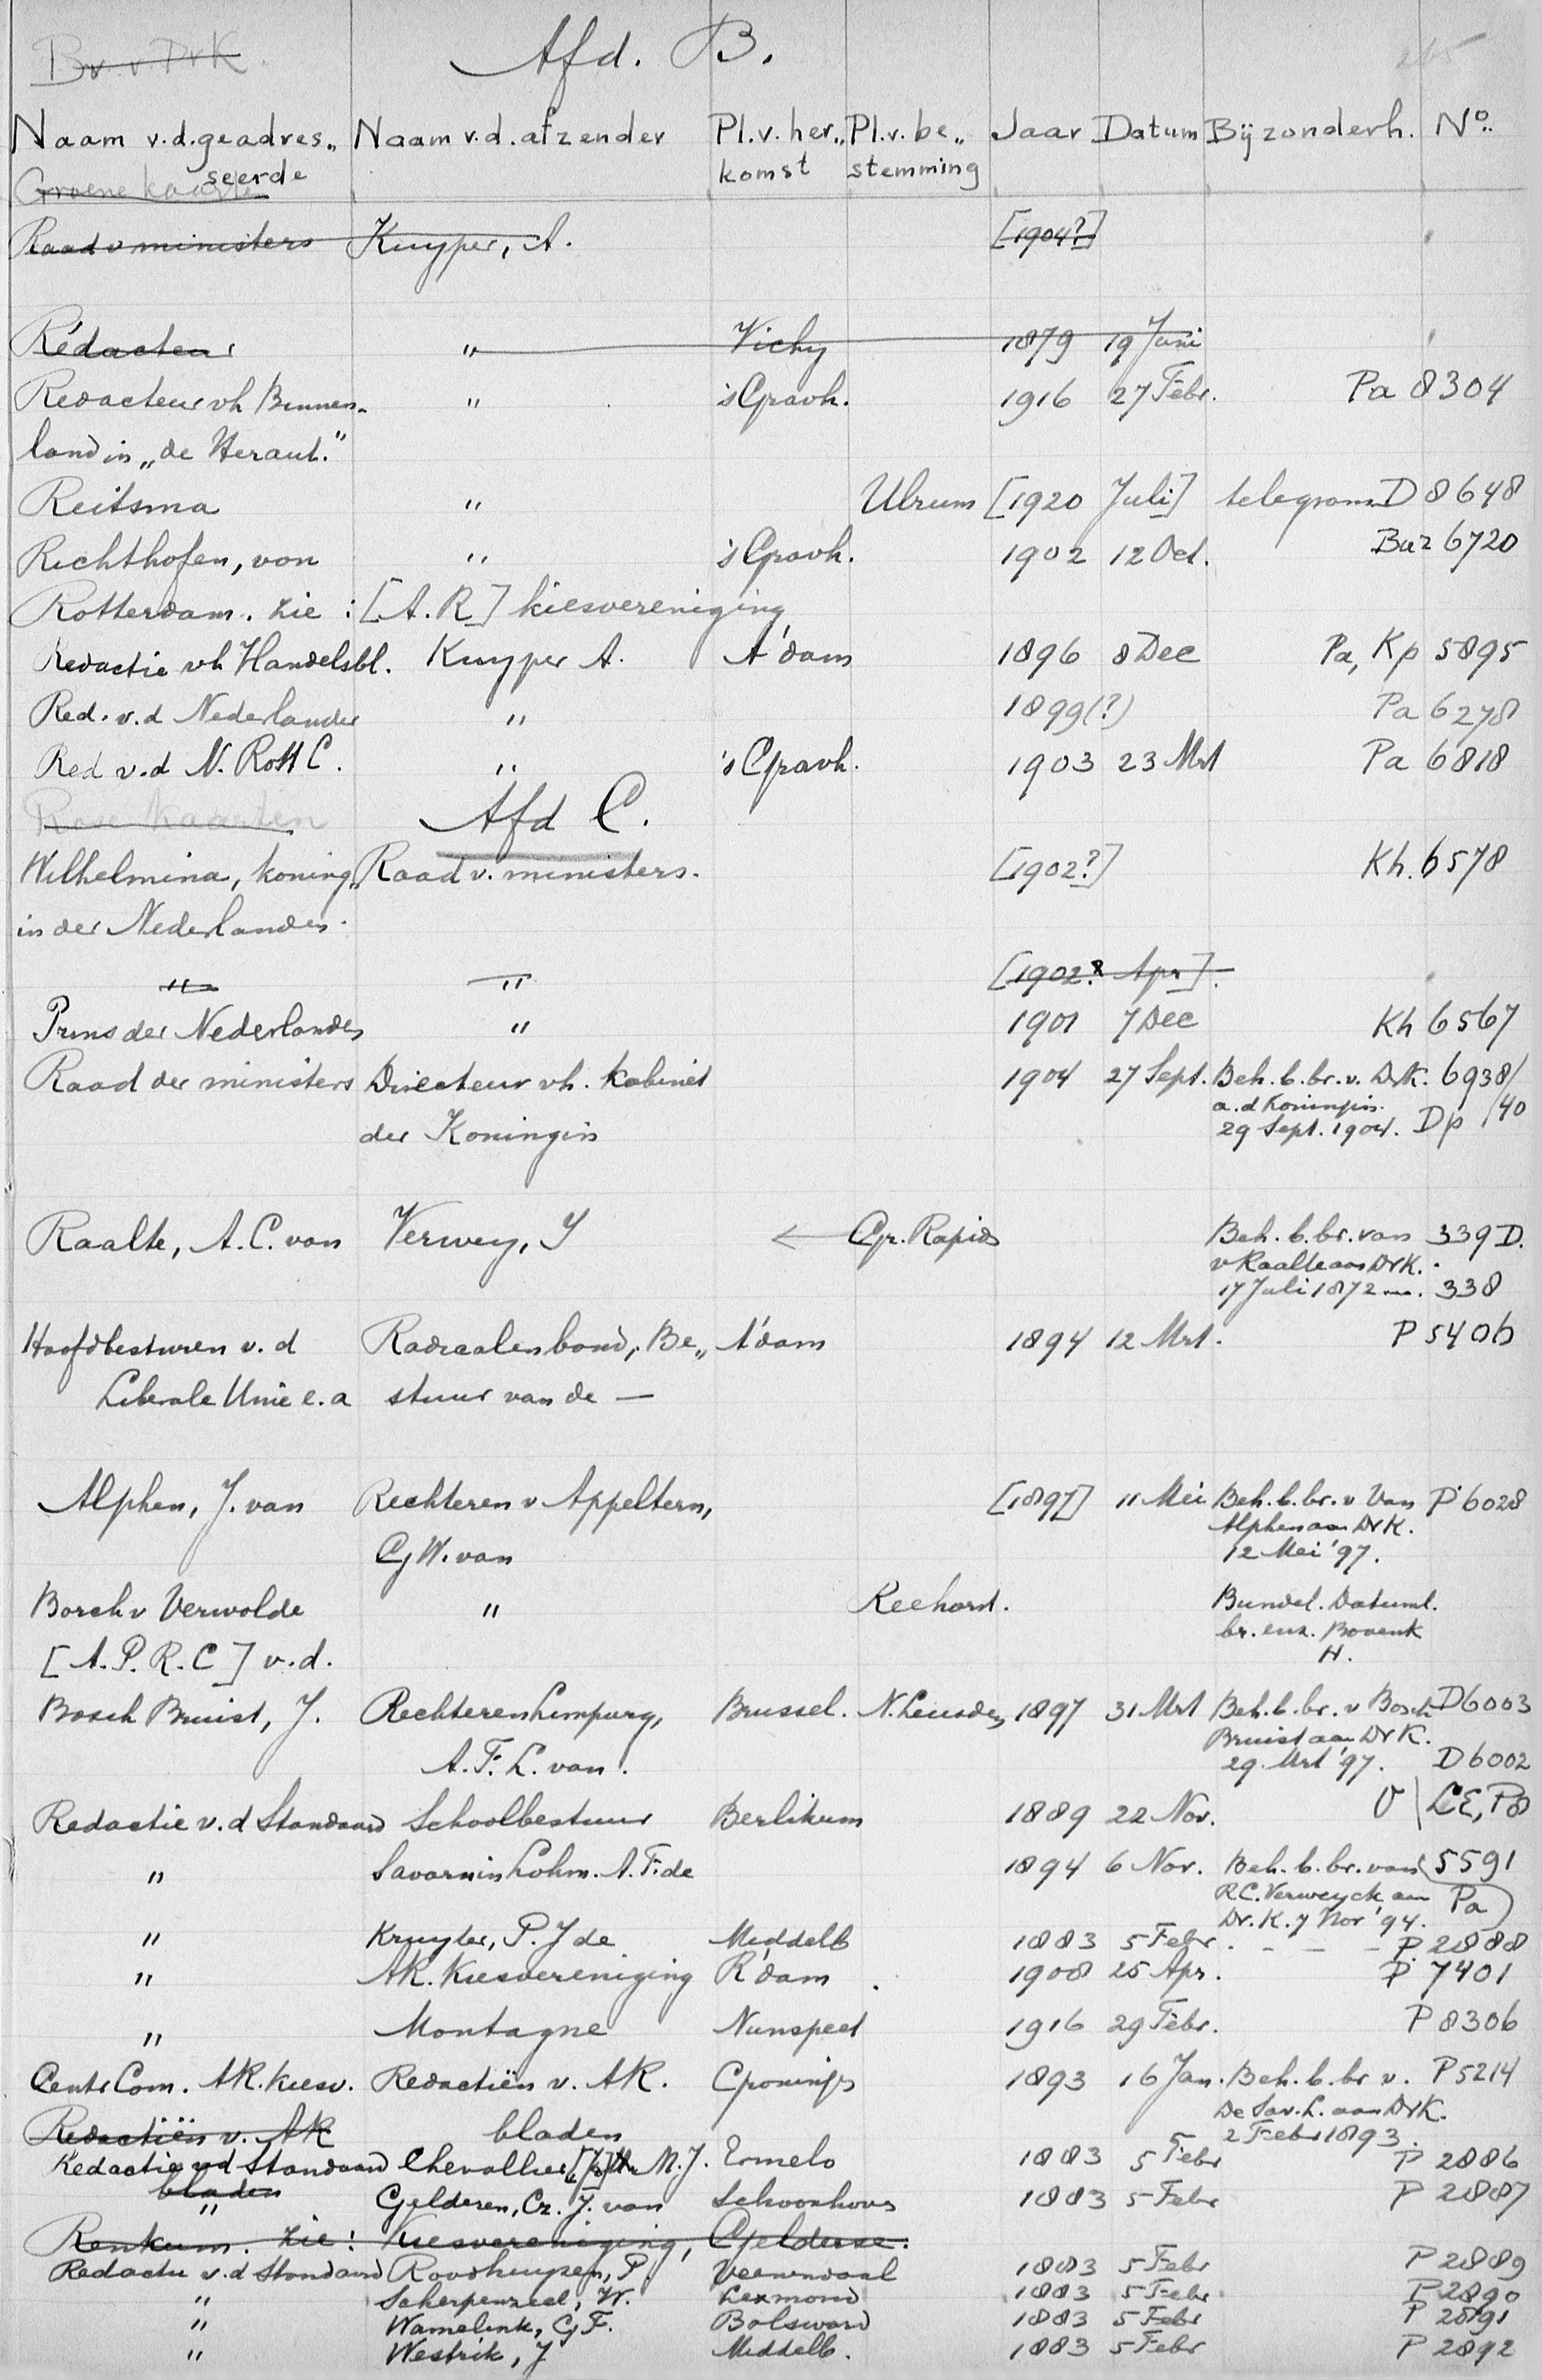 Br. v. DrK. Afd. B. 265
Naam v.d. geadres„ Naam v.d. afzender Pl. v. her„ Pl. v. be„ Jaar Datum Bijzonderh. No.
seerde komst stemming
Groene kaarten
Raad v ministers Kuyper, A. [1904?]
Rédacteur " Vichy 1879 19 Juni
Redacteur vh Binnen- " 's Gravh. 1916 27 Febr. Pa 8304
land in „de Heraut."
Reitsma " Ulrum [1920 Juli] telegram D 8648
Richthofen, von " 's Gravh. 1902 12 Oct. Buz 6720
Rotterdam. zie: [A.R] kiesvereniging
Redactie vh Handelsbl. Kuyper A. A'dam 1896 8 Dec Pa, Kp 5895
Red. v.d Nederlander " 1899(?) Pa 6278
Red v.d N. Rott C. " 's Gravh. 1903 23 Mrt Pa 6818
Rose kaarten Afd C.
Wilhelmina, koning„ Raad v. ministers. [1902?] Kh. 6578
in der Nederlanden.
" " [1902? Apr].
Prins der Nederlanden " 1901 7 Dec Kh 6567
Raad der ministers Directeur vh. Kabinet 1904 27 Sept. Beh. b. br. v. DrK. 6938/
der Koningin a. d Koningin 29 Sept. 1904. Dp /40
Raalte, A.C. van Verwey, J ← Gr. Rapids Beh. b. br. van 339 D.
v Raalte aan DrK.
17 Juli 1872 338
Hoofdbesturen v. d Radicalenbond, Be„ A'dam 1894 12 Mrt. P 5406
Liberale Unie e. a stuur van de —
Alphen, J. van Rechteren v Appeltern, [1897] 11 Mei Beh. b. br. v Van P 6028
G W. van Alphen aan DrK.
12 Mei '97.
Borch v Verwolde " Reehorst. Bundel. Datuml.
[A. P. R. C] v. d. br. enz. Bovenk
H.
Bosch Bruist, J. Rechteren Limpurg, Brussel. N. Leusden 1897 31 Mrt Beh. b. br. v Bosch D 6003
A. F. L. van. Bruist aan DrK.
29 Mrt '97. D 6002
Redactie v.d Standaard Schoolbestuur Berlikum 1889 22 Nov.
" Savornin Lohm. A. F. de 1894 6 Nov. Beh. b. br. van 5591
R.C. Verweyck aan Pa
Dr. K. 7 Nov '94.
" Kruyter, P. J de Middelb 1883 5 Febr. - - - P. 2888
" AR. Kiesvereniging R'dam 1908 25 Apr. P 7401
" Montagne Nunspeet 1916 29 Febr. P 8306
Centr Com. AR. kiesv. Redactiën v. AR. Groningen 1893 16 Jan. Beh. b. br v. P 5214
Redactiën v. AR bladen De Sav. L. aan DrK.
2 Febr 1893.
Redactie v d Standaard Chevallier M. J. Ermelo 1883 5 Febr P 2886
bladen
" Gelderen, Cz. J. van Schoonhoven 1883 5 Febr P 2887
Renkum. zie: Kiesvereniging, Gelderse.
Redactie v. d Standaard Roodhuyzen, P. Veenendaal 1883 5 Febr P 2889
" Scherpenzeel, W. Lexmond 1883 5 Febr P 2890
" Wamelink, G F. Bolsward 1883 5 Febr P 2891
" Westrik, J Middelb. 1883 5 Febr P 2892